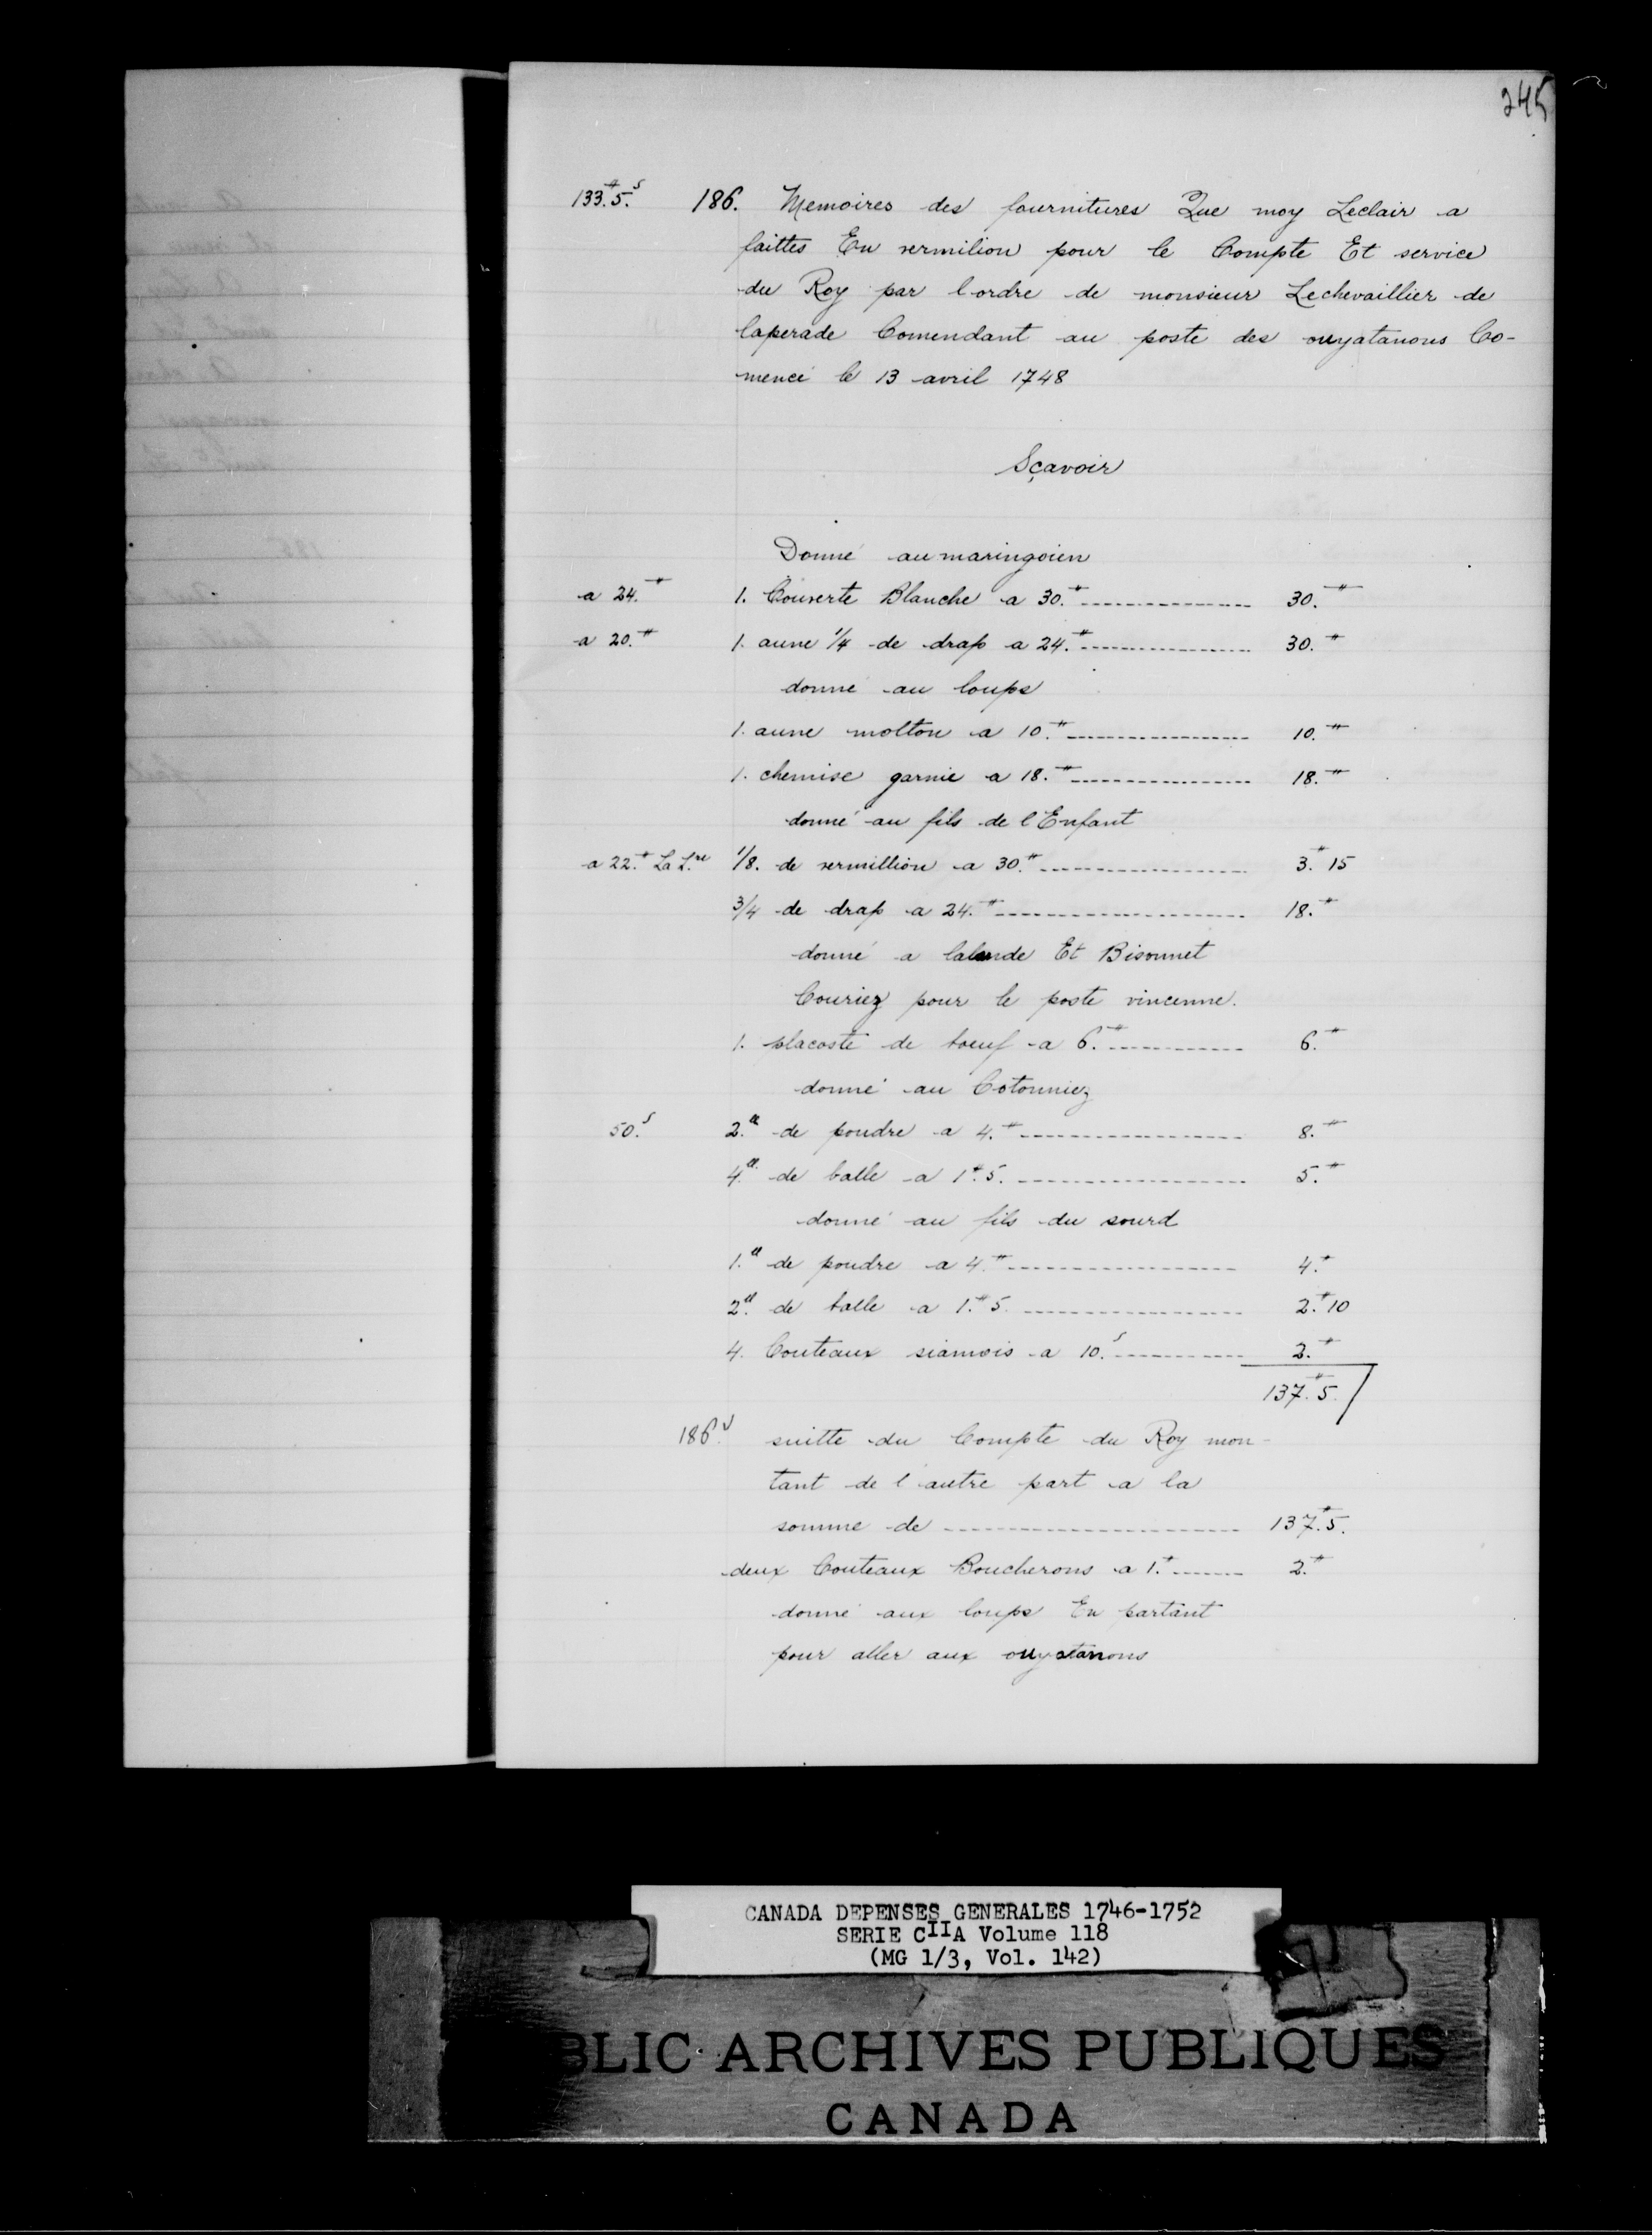 245
133.# 5.s 186. Memoires des fournitures Que moy Leclair a
faittes En vermilion pour le Compte Et service
du Roy par l'ordre de monsieur Lechevaillier de
laperade Comendant au poste des ouyatanous Co-
mencé le 13 avril 1748
Sçavoir
Donné au maringoien
a 24.# 1. Couverte Blanche a 30.# 30.#
a 20.# 1. aune 1/4 de drap a 24.# 30.#
donné au loups
1. aune molton a 10.# 10.#
1. chemise garnie a 18.# 18.#
donné au fils de l'Enfant
a 22.# La L.re 1/8. de vermillion a 30.# 3.# 15
3/4 de drap a 24.# 18.#
donné a lalande Et Bisonnet
Couriez pour le poste vincenne.
1. placoste de boeuf a 6.# 6.#
donné au Cotonniez
50.s 2.ll de poudre a 4.# 8.#
4.ll de balle a 1# 5. 5.#
donné au fils du sourd
1.ll de poudre a 4.# 4.#
2.ll de balle a 1.# 5. 2.# 10
4. Couteaux siamois a 10.s 2.#
137.# 5.
186.v suitte du Compte du Roy mon-
tant de l'autre part a la
somme de 137.# 5.
deux Couteaux Boucherons a 1.# 2.#
donné aux loups En partant
pour aller aux ouyatanons
CANADA DEPENSES GENERALES 1746-1752
SERIE CIIA Volume 118
(MG 1/3, Vol. 142)
BLIC ARCHIVES PUBLIQUES
CANADA